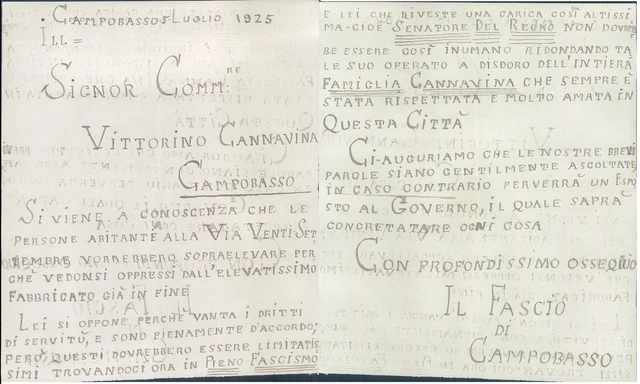 Campobasso 5 Luglio 1925
Ill=
Signor Comm:re
Vittorino Cannavina
Campobasso
Si viene a conoscenza che le
persone abitante alla Via Venti Set
tembre vorrebbero sopraelevare per
chè vedonsi oppressi dall'elevatissimo
fabbricato già in fine
Lei si oppone perchè vanta i dritti
di servitù, e sono pienamente d'accordo;
però questi dovrebbero essere limitatis
simi trovandoci ora in Pieno Fascismo
e lei che riveste una carica così altissi
ma-cioè Senatore Del Regno non dovreb
be essere così inumano ridondando ta
le suo operato a disdoro dell'intiera
Famiglia Cannavina che sempre è
stata rispettata e molto amata in
Questa Città
Ci-auguriamo che le nostre brevi
parole siano gentilmente ascoltate,
in caso contrario perverrà un espo
sto al Governo, il quale saprà
concretatare ogni cosa
Con profondissimo ossequio
Il Fascio
di
Campobasso